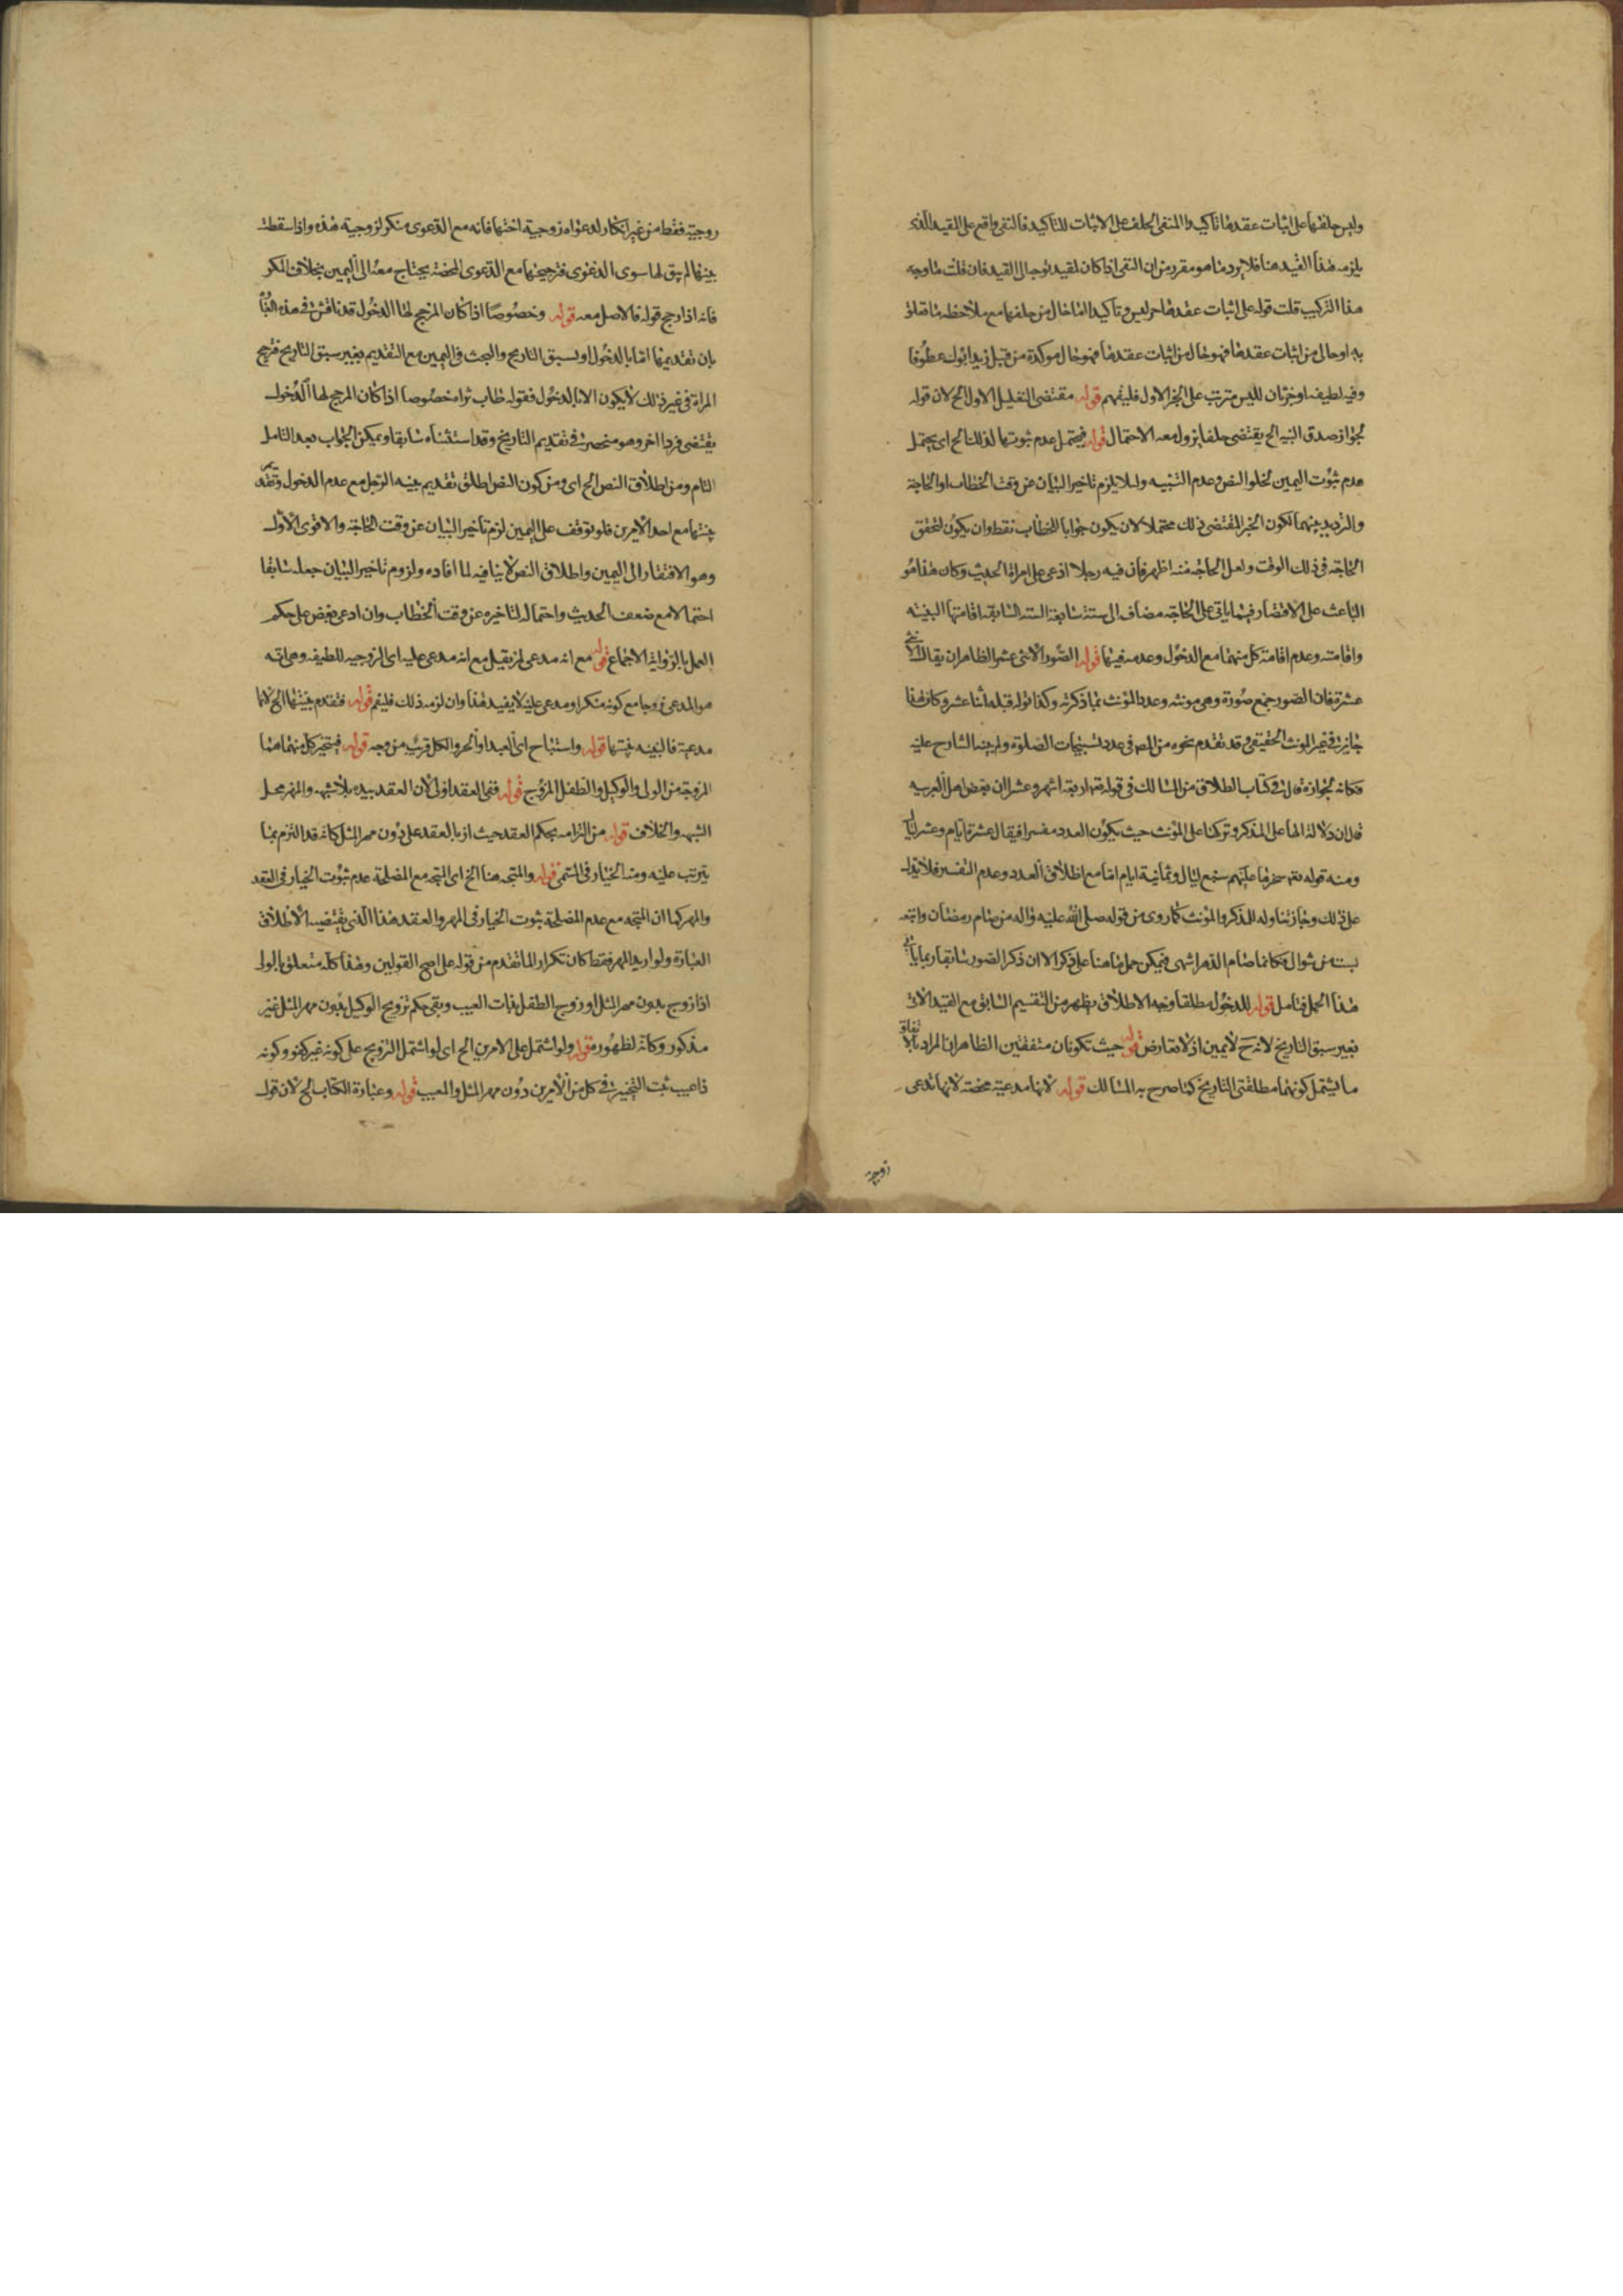 وليس حلفها على اثبات عقدها تاكيد والمنفى الحلف على الاثبات للتاكيد فالنفى واقع على القيد الذى
يلزمه هذا القيد هنا فلا يرد ما هو مقرر من ان النفى اذا كان لقيد توجه الى القيد فان قلت ما وجه
هذا التركيب قلت قوله على اثبات عقدها خبر ليس وتاكيد اما حال من حلفها مع ملاحظة
به او حال من اثبات عقدها فهو حال من اثبات عقدها فهو حال موكدة من قبيل زيد ابوك عطوفا
وفيه لطيفة او خبر ثان لليس مترتب على الخبر الاول فليفهم قوله مقتضى التعليل الاول الخ لان قوله
لجواز صدق البينة الخ يقتضى حلفا يزول معه الاحتمال قوله فيحتمل عدم ثبوتها لذلك الخ اى يحتمل
عدم ثبوت اليمين لخلو النص وعدم التنبيه ولئلا يلزم تاخير البيان عن وقت الخطاب او الحاجة
والترديد بينهما لكون الخبر المقتضى ذلك محتملا لان يكون جوابا للخطاب فقط وان يكون لتحقق
الحاجة فى ذلك الوقت ولعل الحاجة منه اظهر فان فيه رجلا ادعى على امراة الحديث وكان هذا هو
الباعث على الاقتصار فيما ياتى على الحاجة مضاف الى ستة سابقة الستة السابقة اقامتها البينة
واقامته وعدم اقامة كل منهما مع الدخول وعدمه فيها قوله الصور الاثنى عشر الظاهر ان يقال الاثنتى
عشرة فان الصور جمع صورة وهى مونثه وعدد المؤنث بما ذكرته وكذا قوله قبله اثنا عشر وكان هذا
جايز فى غير المونث الحقيقى وقد تقدم نحوه من المص فى عدد تسبيحات الصلوة ولم ينبه الشارح عليه
فكانه لجوازه قال فى كتاب الطلاق من المسالك فى قوله تعه اربعة اشهر وعشرا ان بعض اهل العربيه
قال ان دلالة الهاء على المذكر وتركها على المؤنث حيث يكون العدد مفسرا فيقال عشرة ايام وعشر ليال
ومنه قوله تعه سخرها عليهم سبع ليال وثمانية ايام اما مع اطلاق العدد وعدم التفسير فلا يدل
على ذلك وجاز تناوله للمذكر والمؤنث كما روى من قوله صلى الله عليه واله من صام رمضان واتبعه
بست من شوال فكانما صام الدهر انتهى فيمكن حمل ما هنا على ذكر الا ان ذكر الصور سابقا ربما يابى
هذا الحمل فتامل قوله للدخول مطلقا وجه الاطلاق يظهر من التقسيم السابق مع القيد الاتى
بغير سبق التاريخ لانه ح لا يمين اذ لا تعارض قوله حيث تكونان متفقتين الظاهر ان المراد بالاتفاق
ما يشتمل كونهما مطلقتى التاريخ كما صرح به المسالك قوله لانها مدعية محضة لانها تدعى
زوجية
زوجية فقط من غير انكار لدعواه زوجية اختها فانه مع الدعوى منكر لزوجية هذه واذا سقطت
بينتها لم يبق لها سوى الدعوى فترجيحها مع الدعوى المحضة يحتاج معه الى اليمين بخلاف المنكر
فانه اذا رجح قوله فالاصل معه قوله وخصوصا اذا كان المرجح لها الدخول قد ناقش فى هذه
بان تقديمها اما بالدخول او بسبق التاريخ والبحث فى اليمين مع التقديم بغير سبق التاريخ فترجح
المراة فى غير ذلك لا يكون الا بالدخول فقوله طاب ثراه خصوصا اذا كان المرجح لها الدخول
يقتضى فردا اخر وهو منحصر فى تقديم التاريخ وقد استثناه سابقا ويمكن الجواب بعد التامل
التام ومن اطلاق النص الخ اى ومن كون النص اطلق تقديم بينة الرجل مع عدم الدخول وتقديم
بينتها مع احد الامرين فلو توقف على اليمين لزم تاخير البيان عن وقت الحاجة والاقوى الاول
وهو الافتقار الى اليمين واطلاق النص لا ينافيه لما افاده ولزوم تاخير البيان جعله سابقا
احتمالا مع ضعف الحديث واحتماله لتاخيره عن وقت الخطاب وان ادعى بعض على حكم
العمل بالرواية الاجماع قوله مع انه مدعى لم يقل مع انه مدعى عليه اى الزوجيه للطيفه وهى انه
هو المدعى زوجا مع كونه منكرا ومدعى عليه لا يفيد هذا وان لزمه ذلك فليفهم قوله فتقدم بينتها الخ لانها
مدعية فالبينة بينتها قوله واستباح اى العبد او الحر والكل قريب من وجه قوله فيتخير كل منهما هنا
المزوجة من الولى والوكيل والطفل المزوج قوله ففى العقد اولى لان العقد بيده بلا شبهة والمهر محل
الشبهة والخلاف قوله من التزامه بحكم العقد حيث ازيا لعقد على دون مهر المثل كانه قد التزم بما
يترتب عليه ومنه الخيار فى المسمى قوله والمتجه هنا الخ اى المتجه مع المصلحة عدم ثبوت الخيار فى العقد
والمهر كما ان المتجه مع عدم المصلحة ثبوت الخيار فى المهر والعقد هذا الذى يقتضيه الاطلاق
العبارة ولو اريد المهر فقط كان تكرارا لما تقدم من قوله على اصح القولين وهذا كله متعلق بالولى
اذا زوج بدون مهر المثل او زوج الطفل بذات العيب وبقى حكم تزويج الوكيل بدون مهر المثل غير
مذكور وكانه لظهوره قوله ولو اشتمل على الامرين الخ اى لو اشتمل التزويج على كونه غير كفو وكونه
ذا عيب ثبت التخيير فى كل من الامرين دون مهر المثل والمعيب قوله وعبارة الكتاب الخ لان قوله